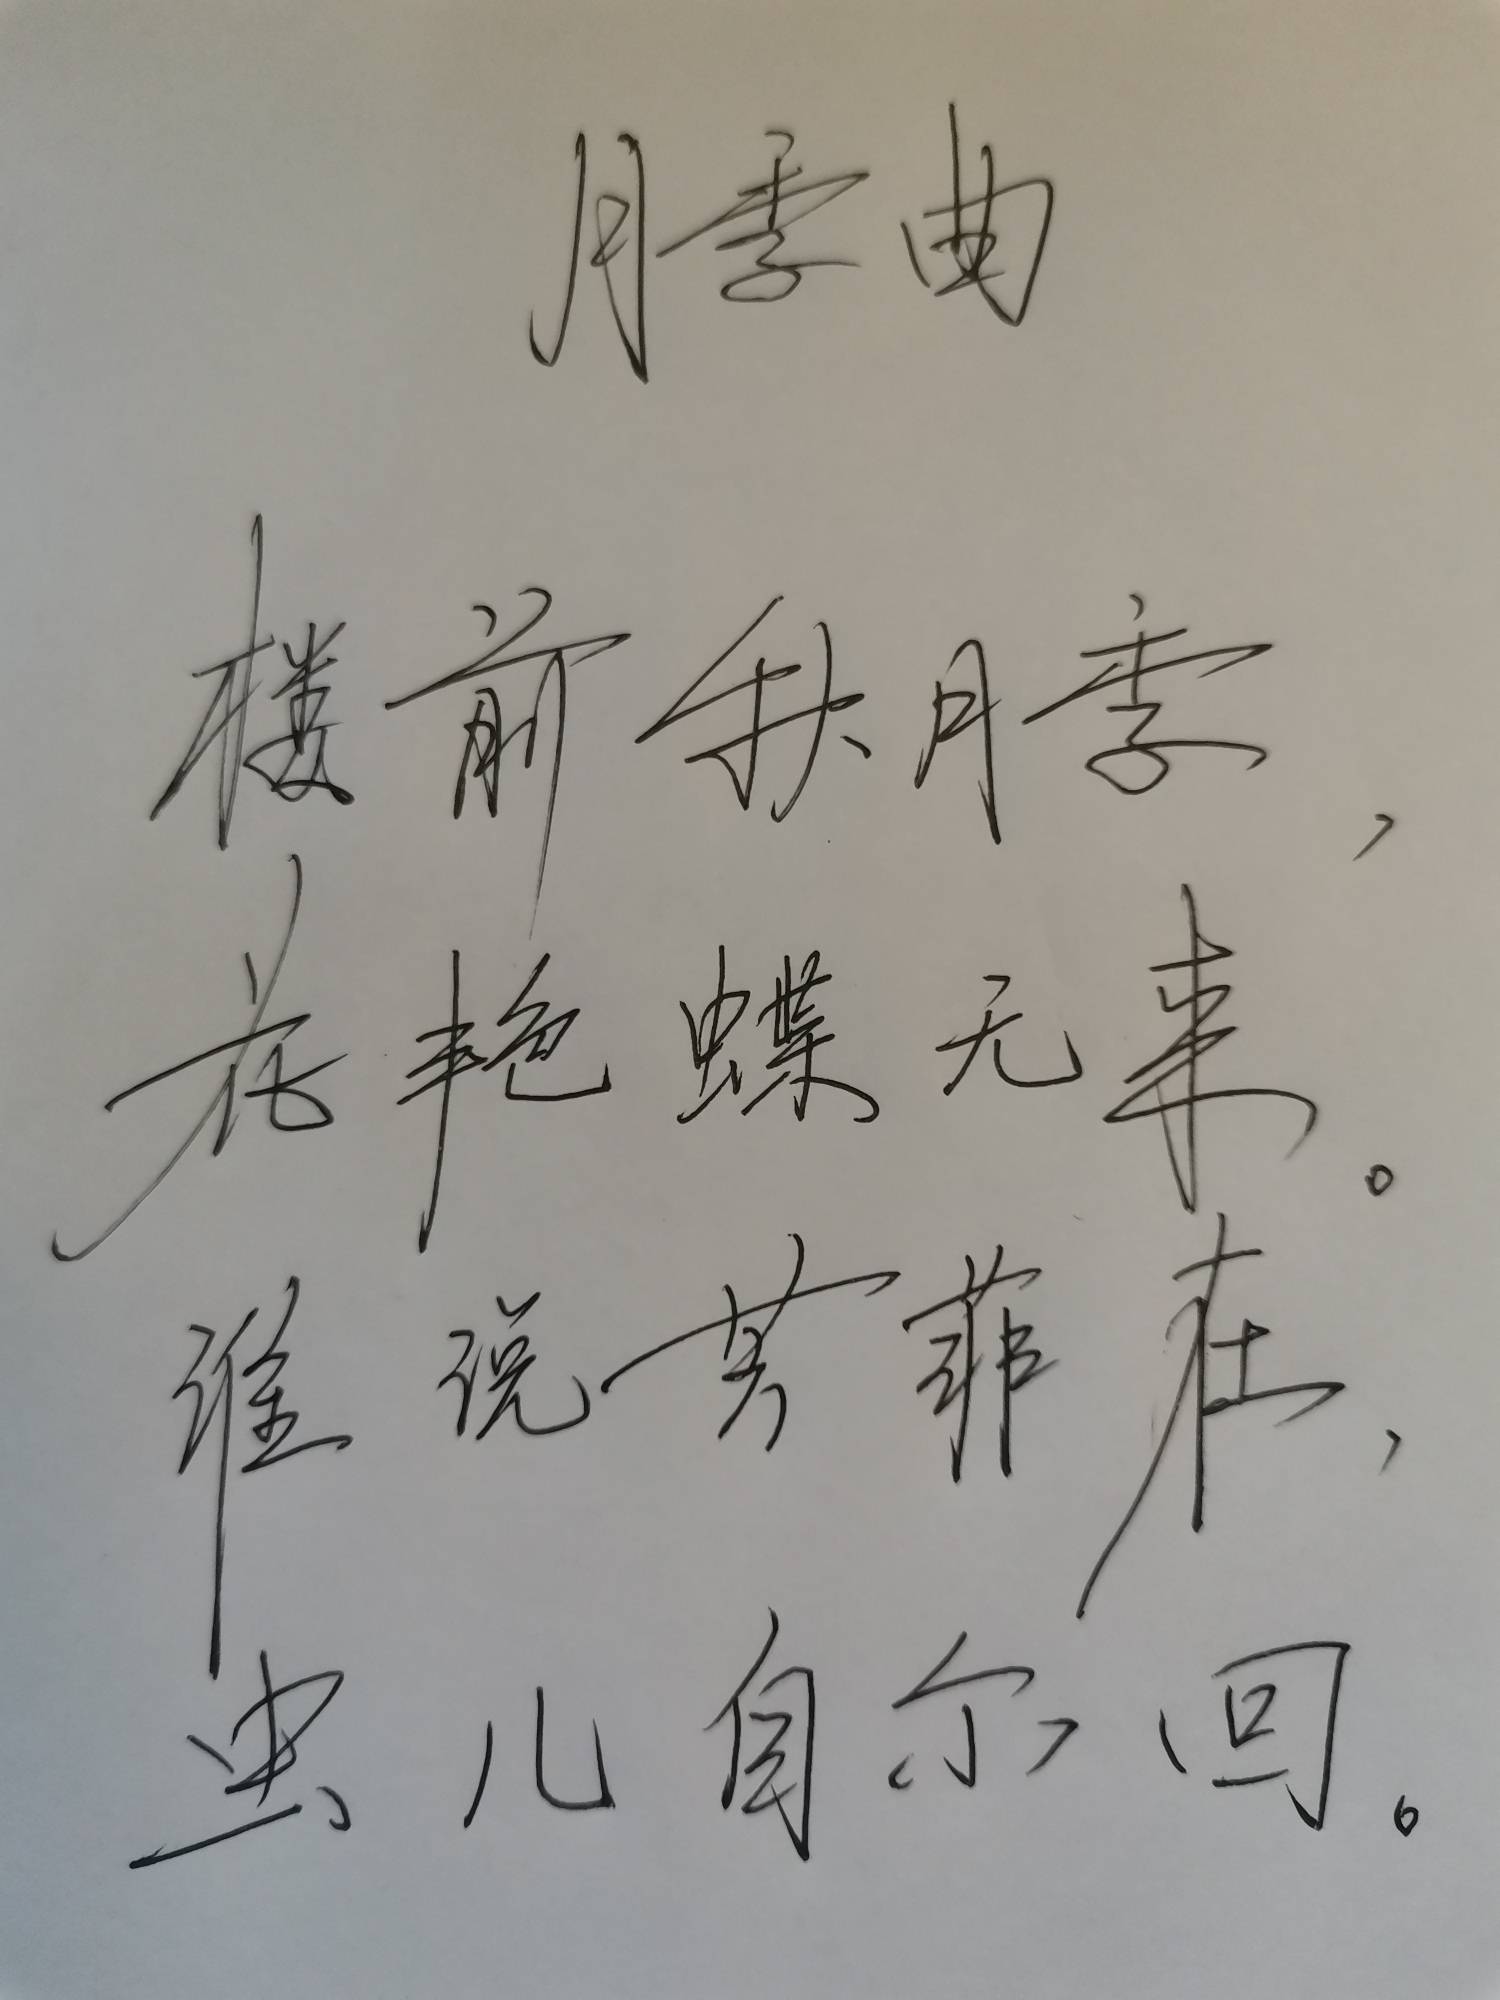 月季曲
楼前秋月季,
花艳蝶无来。
谁说芳菲在,
虫儿自尔回。